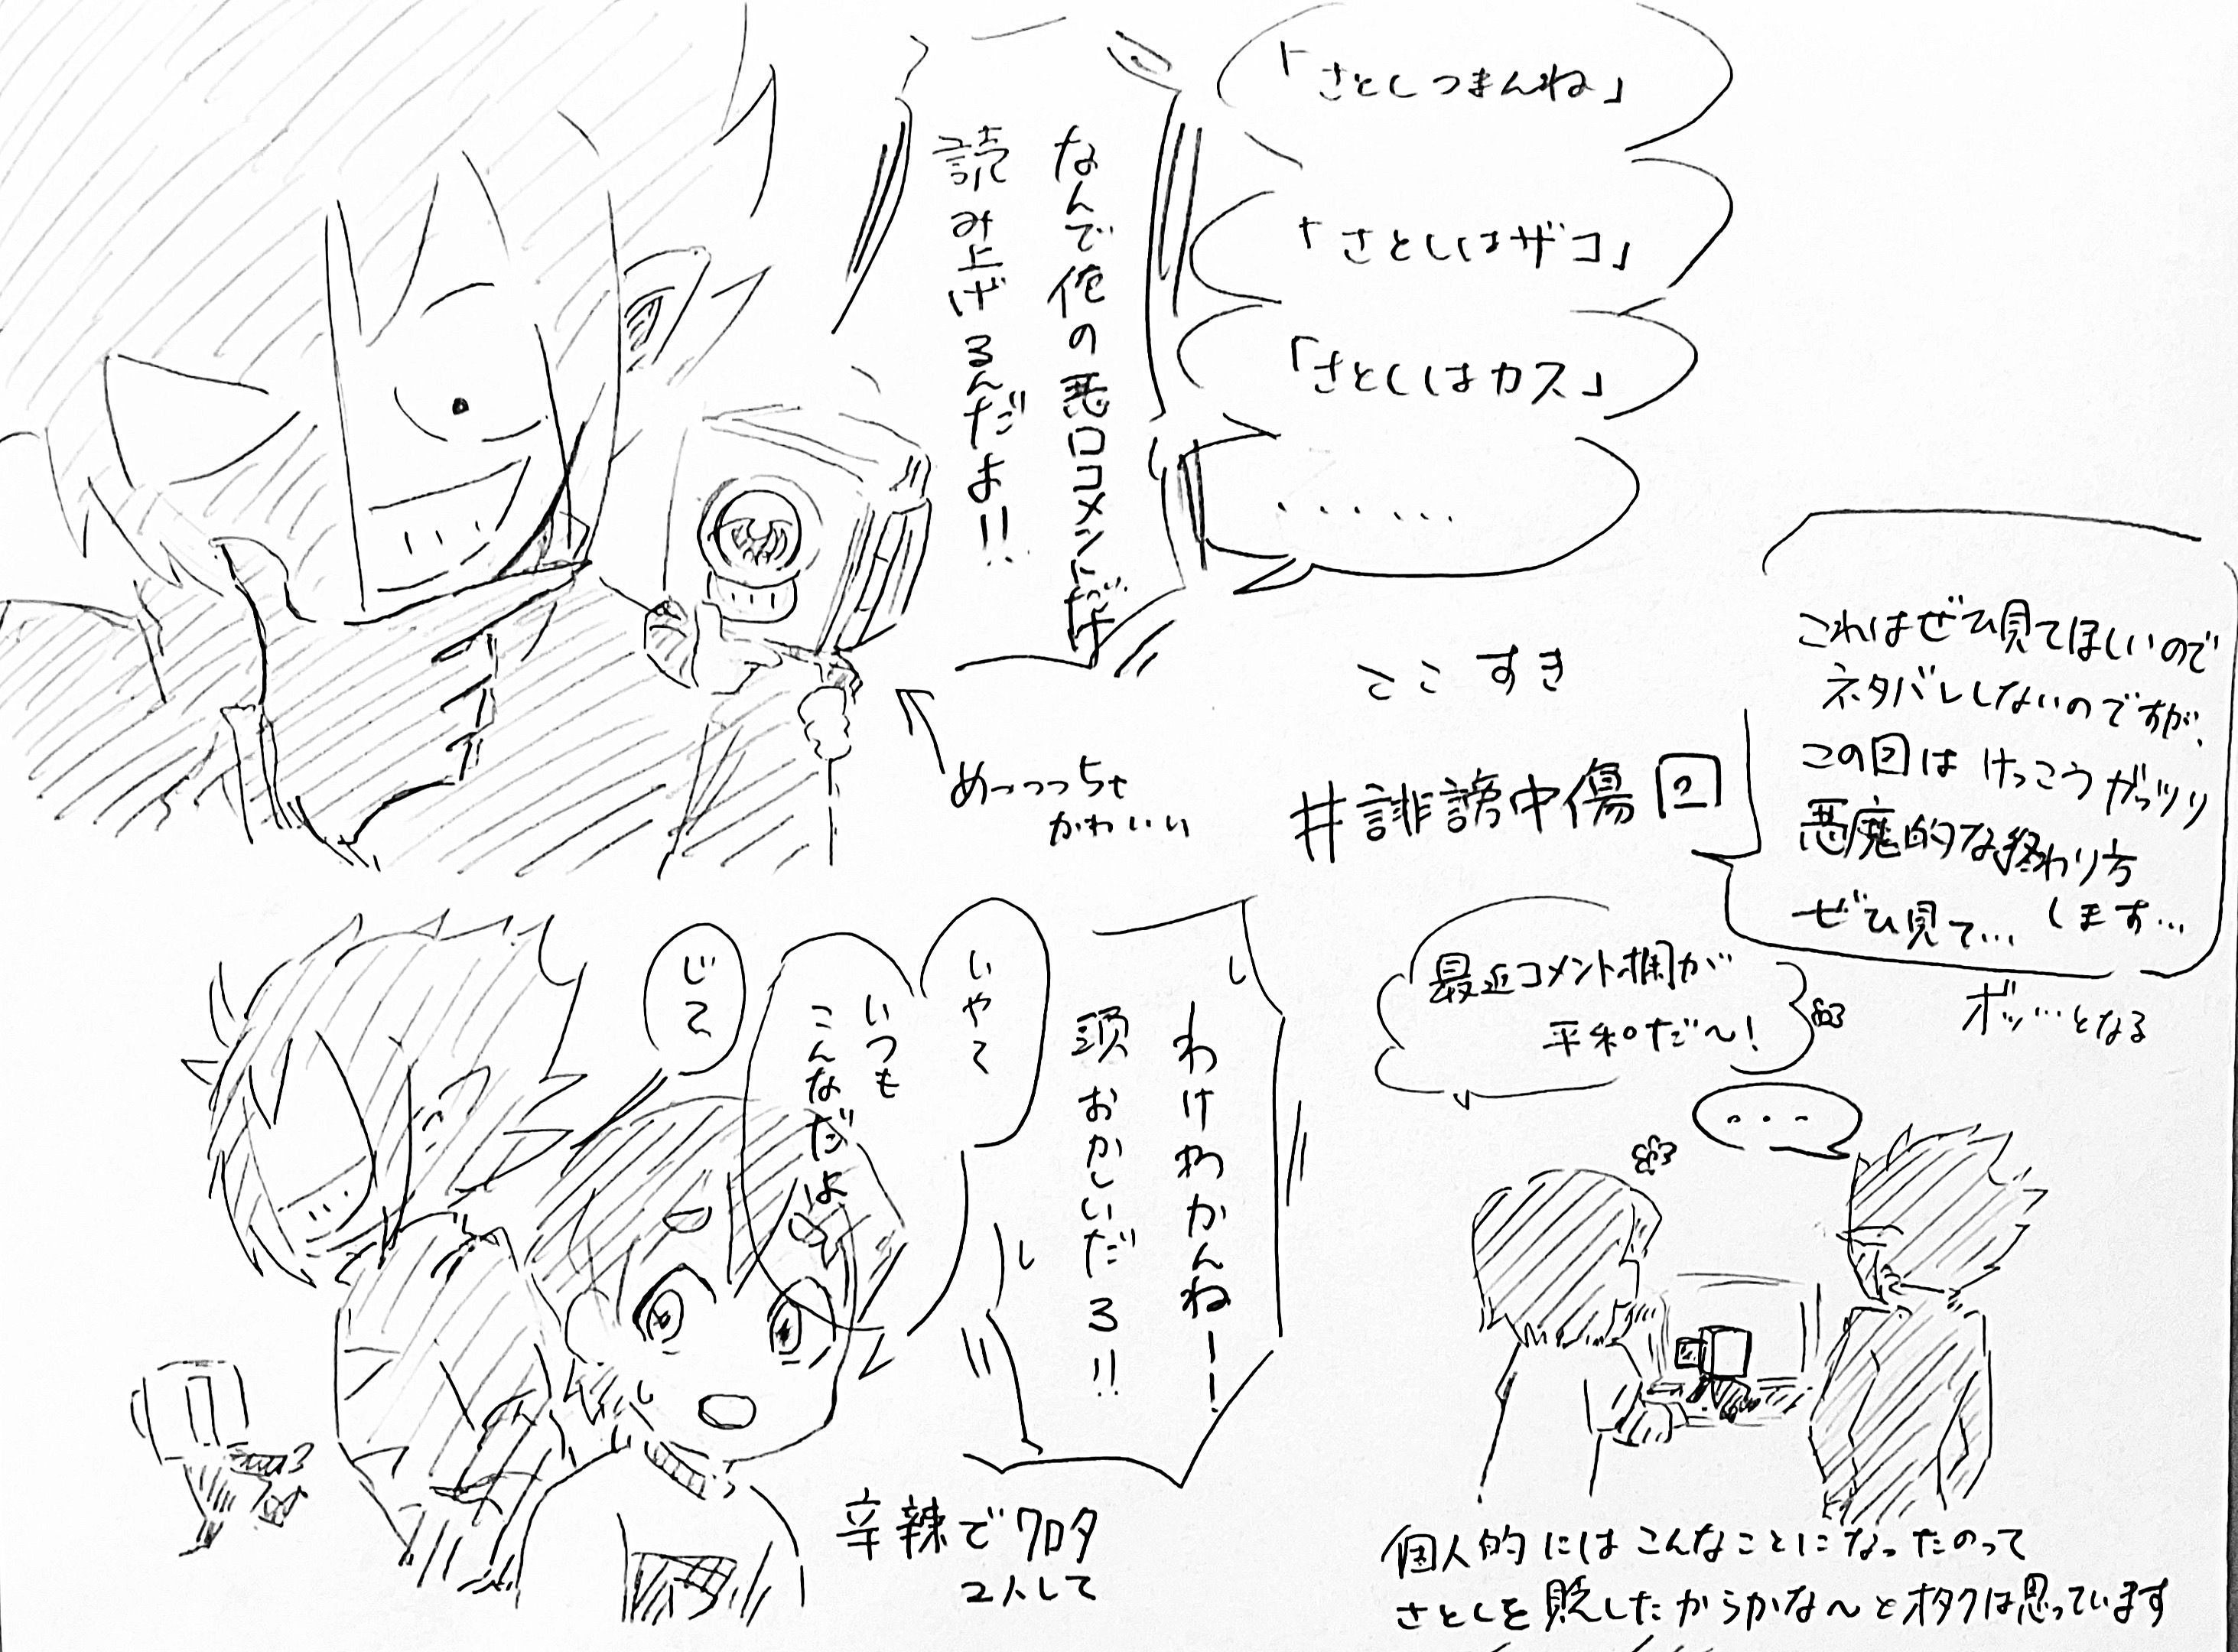 「さとしつまんね」
「さとしはザコ」
「さとしはカス」
......
なんで俺の悪口コメントだけ
読み上げるんだよ!!
ここすき
めっっっちゃ
かわいい
#誹謗中傷回
これはぜひ見てほしいので
ネタバレしないのですが、
この回はけっこうガッツリ
悪魔的な終わり方
します…
ぜひ見て…
ボッ…となる
わけわかんねーー!
頭おかしいだろ!!
いやて
いつも
こんなだよ
じて
辛辣でワロタ
2人して
最近コメント欄が
平和だ〜!
...
個人的にはこんなことになったのって
さとしを貶したからかな〜とオタクは思っています